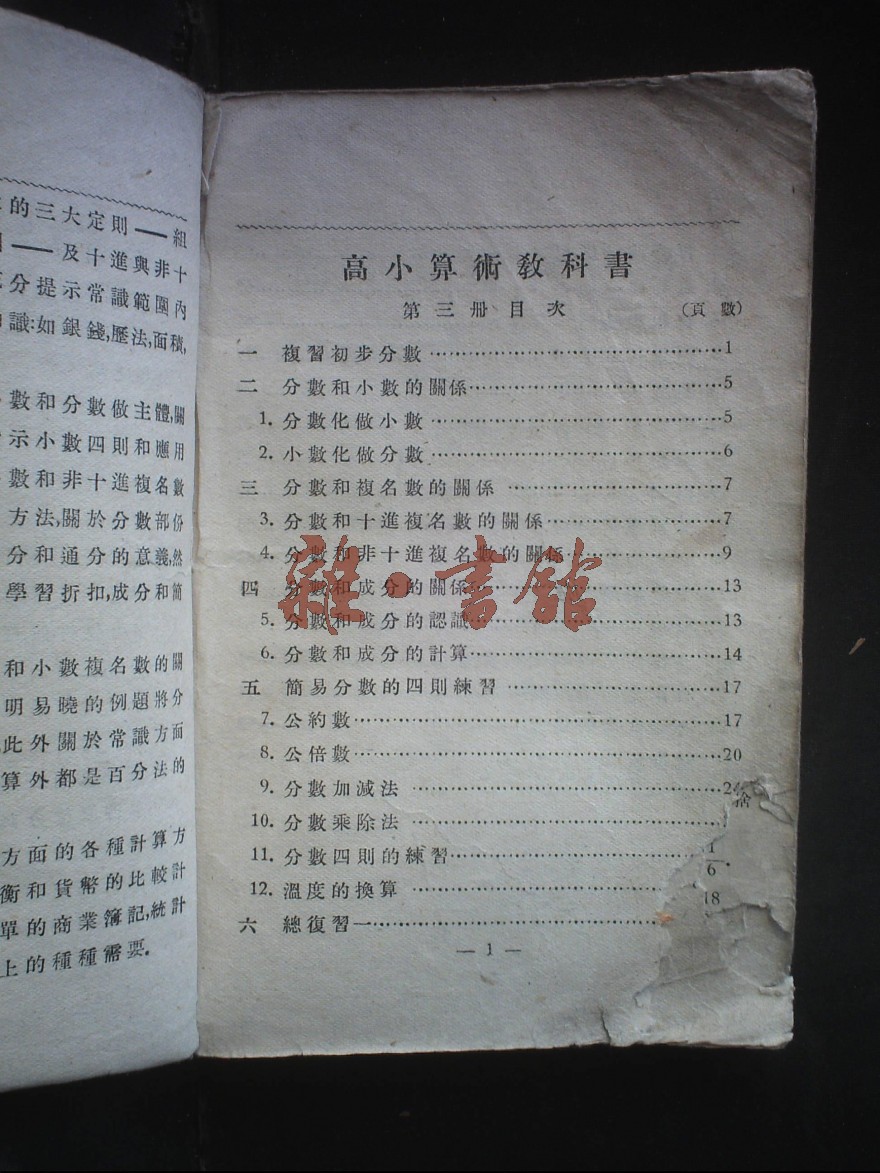 的三大定則——組
——及十進與非十
分提示常識範圍內
識:如銀錢,歷法,面積,
數和分數做主體,關
示小數四則和應用
數和非十進複名數
方法,關於分數部份
分和通分的意義,然
學習折扣,成分和簡
和小數複名數的關
明易曉的例題將分
此外關於常識方面
算外都是百分法的
方面的各種計算方
衡和貨幣的比較計
單的商業簿記,統計
上的種種需要.
高小算術敎科書
第三册目次 (頁數)
一 複習初步分數…………1
二 分數和小數的關係…………5
1. 分數化做小數…………5
2. 小數化做分數…………6
三 分數和複名數的關係…………7
3. 分數和十進複名數的關係…………7
4. 分數和非十進複名數的關係…………9
四 分數和成分的關係…………13
5. 分數和成分的認識…………13
6. 分數和成分的計算…………14
五 簡易分數的四則練習…………17
7. 公約數…………17
8. 公倍數…………20
9. 分數加減法…………2
10. 分數乘除法…………
11. 分數四則的練習…………
12. 溫度的換算…………
六 總復習一…………
— 1 —
雜·書館